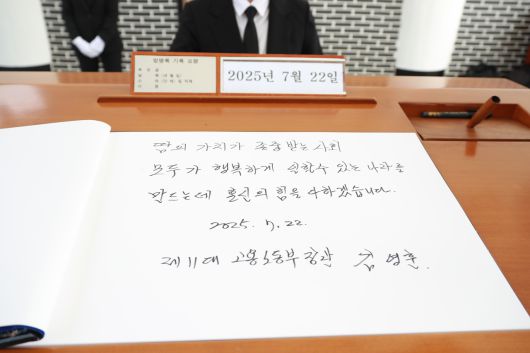 방명록 기록 요령
2025년 7월 22일
땀의 가치가 존중 받는 사회
모두가 행복하게 일할 수 있는 나라를
만드는데 혼신의 힘을 다하겠습니다.
2025. 7. 22.
제11대 고용노동부장관 김영훈